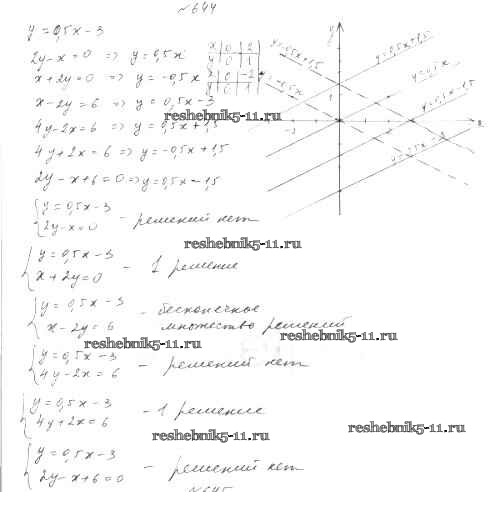 №644
y = 0,5x - 3
2y - x = 0 => y = 0,5x
x + 2y = 0 => y = -0,5x
x - 2y = 6 => y = 0,5x - 3
4y - 2x = 6 => y = 0,5x + 1,5
4y + 2x = 6 => y = -0,5x + 1,5
2y - x + 6 = 0 => y = 0,5x - 1,5
x 0 2
y 0 1
x 0 -2
y 0 1
y
y = -0,5x
y = 0,5x
x
-3
reshebnik5-11.ru
{ y = 0,5x - 3
2y - x = 0 - решений нет
reshebnik5-11.ru
{ y = 0,5x - 3
x + 2y = 0 - 1 решение
{ y = 0,5x - 3
x - 2y = 6 - бесконечное
множество решений
reshebnik5-11.ru
reshebnik5-11.ru
{ y = 0,5x - 3
4y - 2x = 6 - решений нет
{ y = 0,5x - 3
4y + 2x = 6 - 1 решение
reshebnik5-11.ru
reshebnik5-11.ru
{ y = 0,5x - 3
2y - x + 6 = 0 - решений нет
№645